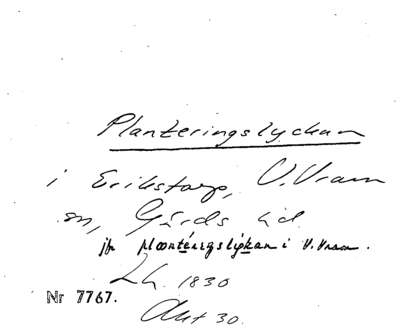 Planteringslyckan
i Erikstorp, V. Vram
sn, Gärds hd
jfr ploonténingslýkan i V. Vram.
Lh. 1830
Nr 7767.
Akt 30.